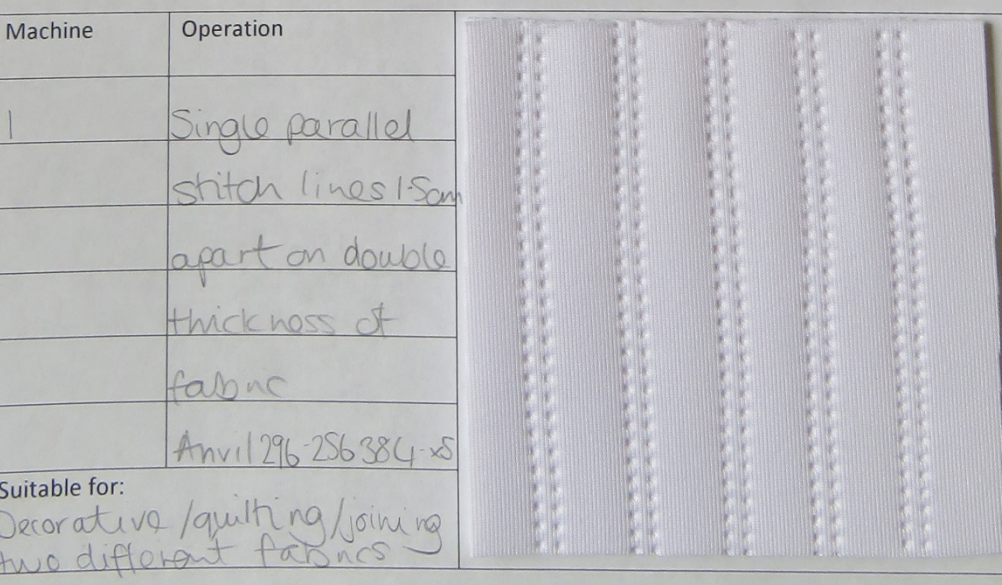 Machine Operation
1 Single parallel
stitch lines 1.5cm
apart on double
thickness of
fabric
Anvil 296-256384-x5
Suitable for:
Decorative/quilting/joining
two different fabrics